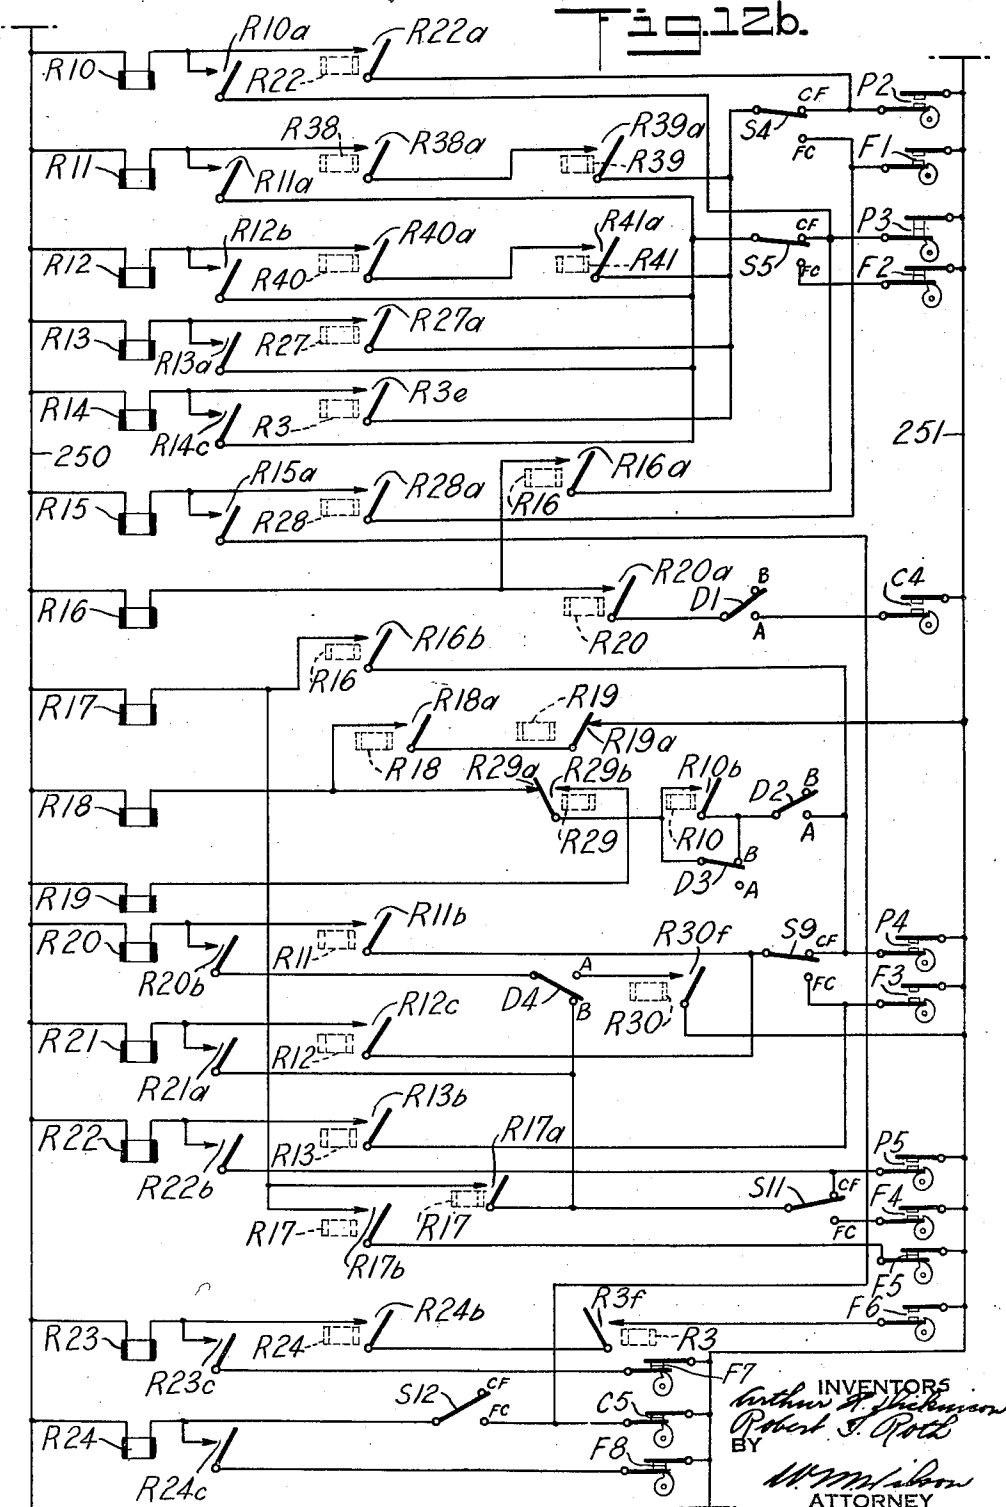 Fig.12b.
R10 R10a R22 R22a
CF P2
S4
FC F1
R11 R11a R38 R38a R39a R39
R12 R12b R40 R40a R41a R41
CF P3
S5 FC F2
R13 R13a R27 R27a
R14 R14c R3 R3e
250 251
R15 R15a R28 R28a R16 R16a
R16 R20a R20 D1 B A C4
R17 R16 R16b
R18a R18 R19 R19a
R18 R29a R29b R29 R10b R10 D2 B A
D3 B A
R19
R20 R20b R11 R11b R30f S9 CF FC P4 F3
D4 A B R30
R21 R21a R12 R12c
R22 R22b R13 R13b R17a P5
R17 R17b R17 S11 CF FC F4
F5
R23 R23c R24 R24b R3f R3 F6
F7
R24 R24c S12 CF FC C5
F8
INVENTORS
Arthur H. Dickinson
Robert I. Roth
BY
W.M. Wilson
ATTORNEY